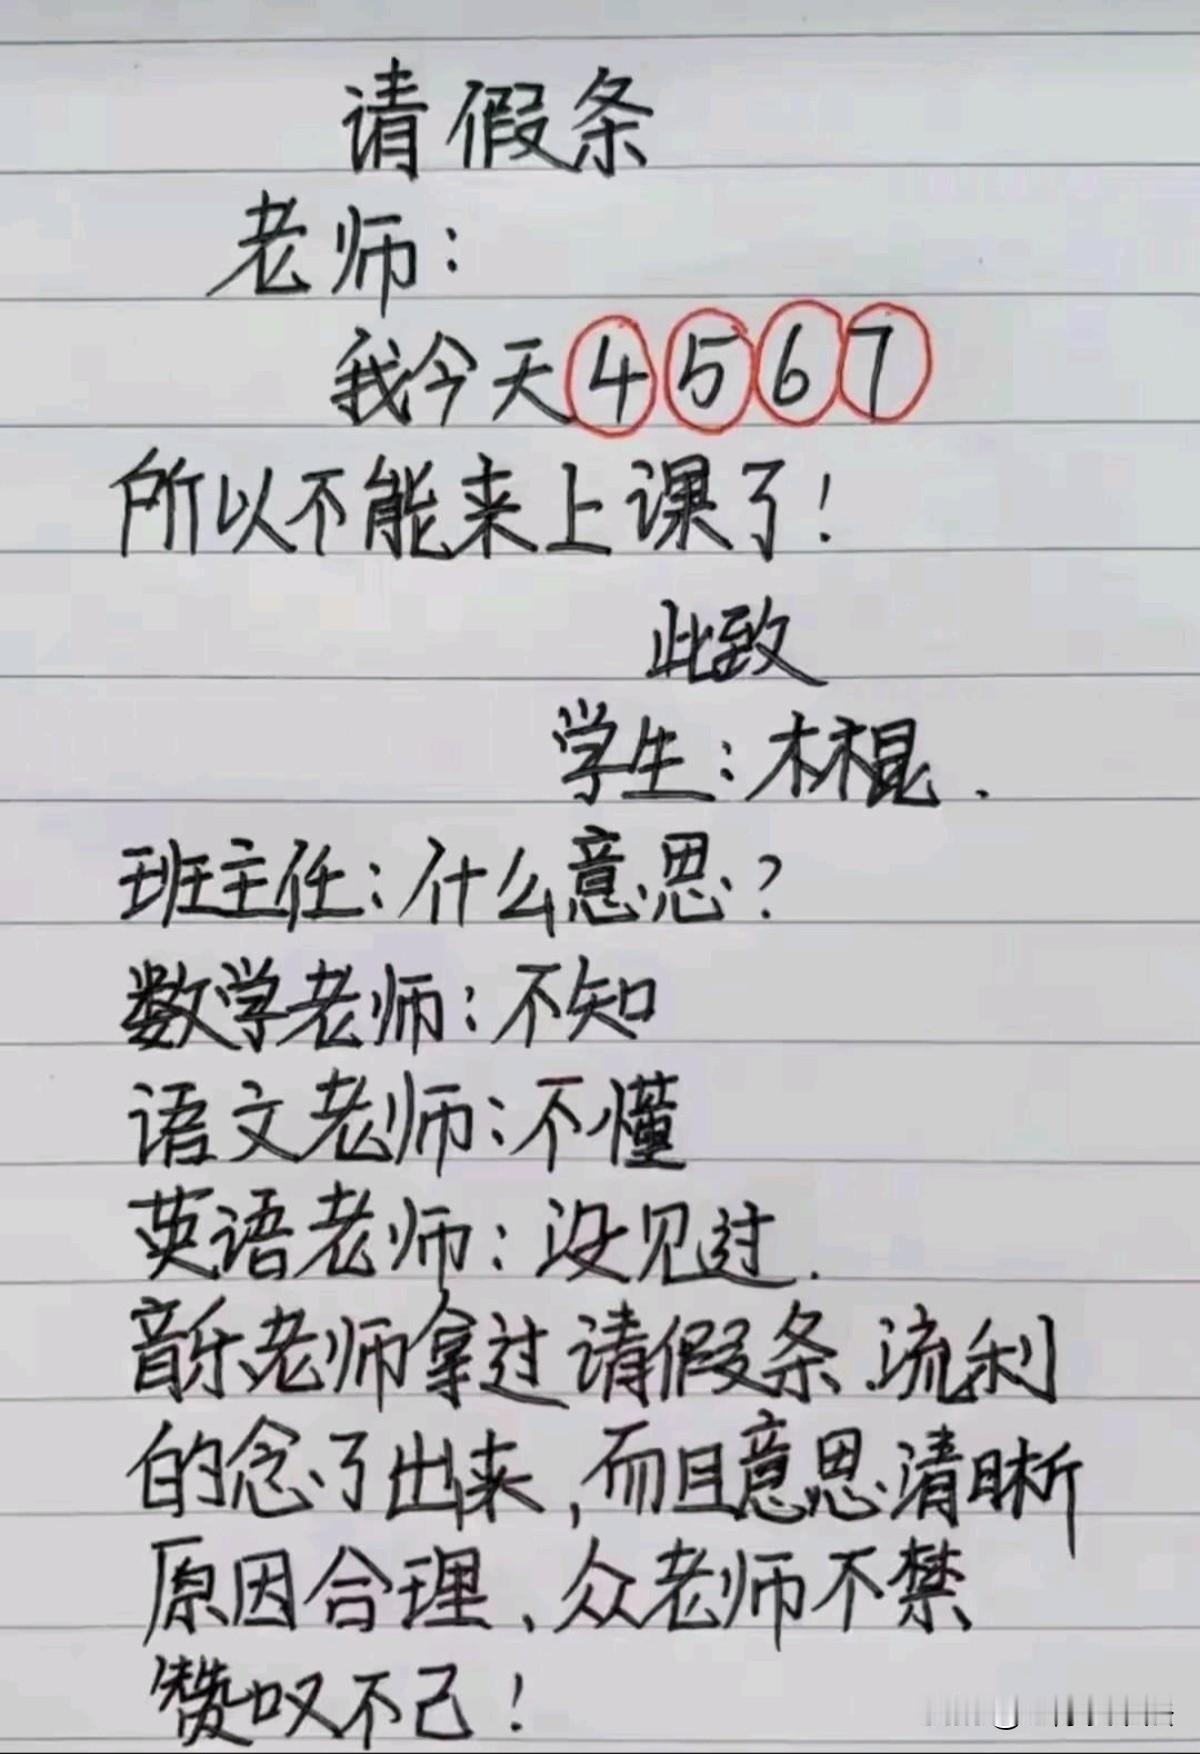 请假条
老师:
我今天4567
所以不能来上课了!
此致
学生:林棍.
班主任:什么意思?
数学老师:不知
语文老师:不懂
英语老师:没见过.
音乐老师拿过请假条.流利
的念了出来,而且意思清晰
原因合理、众老师不禁
赞叹不己!